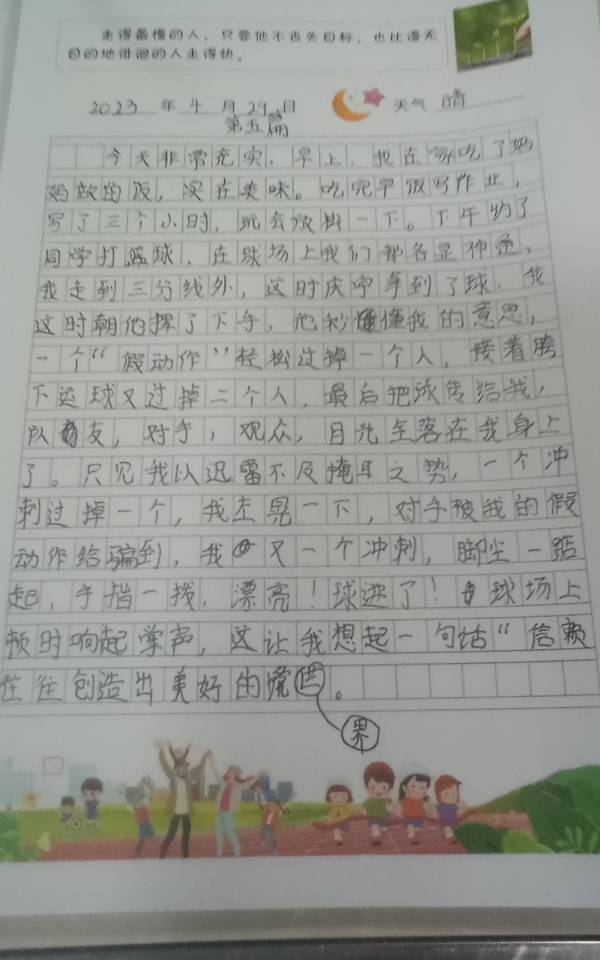 走得最慢的人，只要他不丧失目标，也比漫无
目的地徘徊的人走得快。
2023 年 4 月 29 日 天气 晴
第五篇
今天非常充实，早上，我在家吃了妈
妈做的饭，实在美味。吃完早饭写作业，
写了三个小时，玩会放松一下。下午约了
同学打篮球，在球场上我们都各显神通，
我走到三分线外，这时庆宇拿到了球，我
这时朝他挥了下手，他秒懂懂我的意思，
一个“假动作”轻松过掉一个人，接着胯
下运球又过掉二个人，最后把球传给我，
队友，对手，观众，目光全落在我身上
了。只见我以迅雷不及掩耳之势，一个冲
刺过掉一个，我左晃一下，对手被我的假
动作给骗到，我又一个冲刺，脚尘一踮
起，手指一拨，漂亮！球进了！球场上
顿时响起掌声，这让我想起一句话“信赖
往往创造出美好的境
。
界